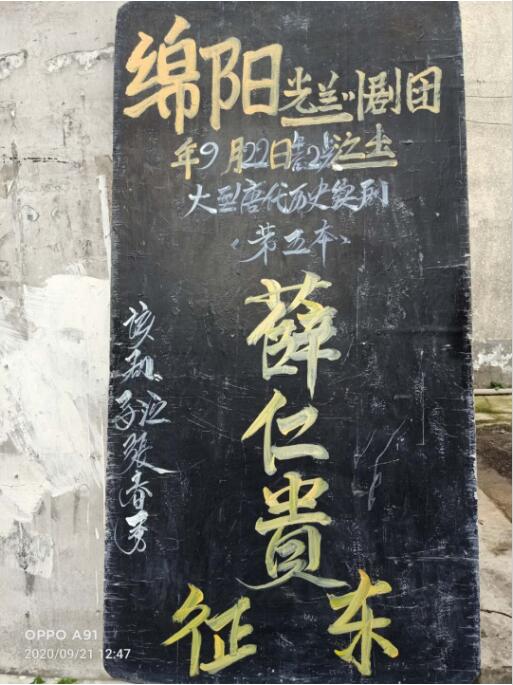 绵阳光兰川剧团
年9月22日
大型唐代历史
第五本
薛仁贵
征东
该剧
张春秀
OPPO A91
2020/09/21 12:47